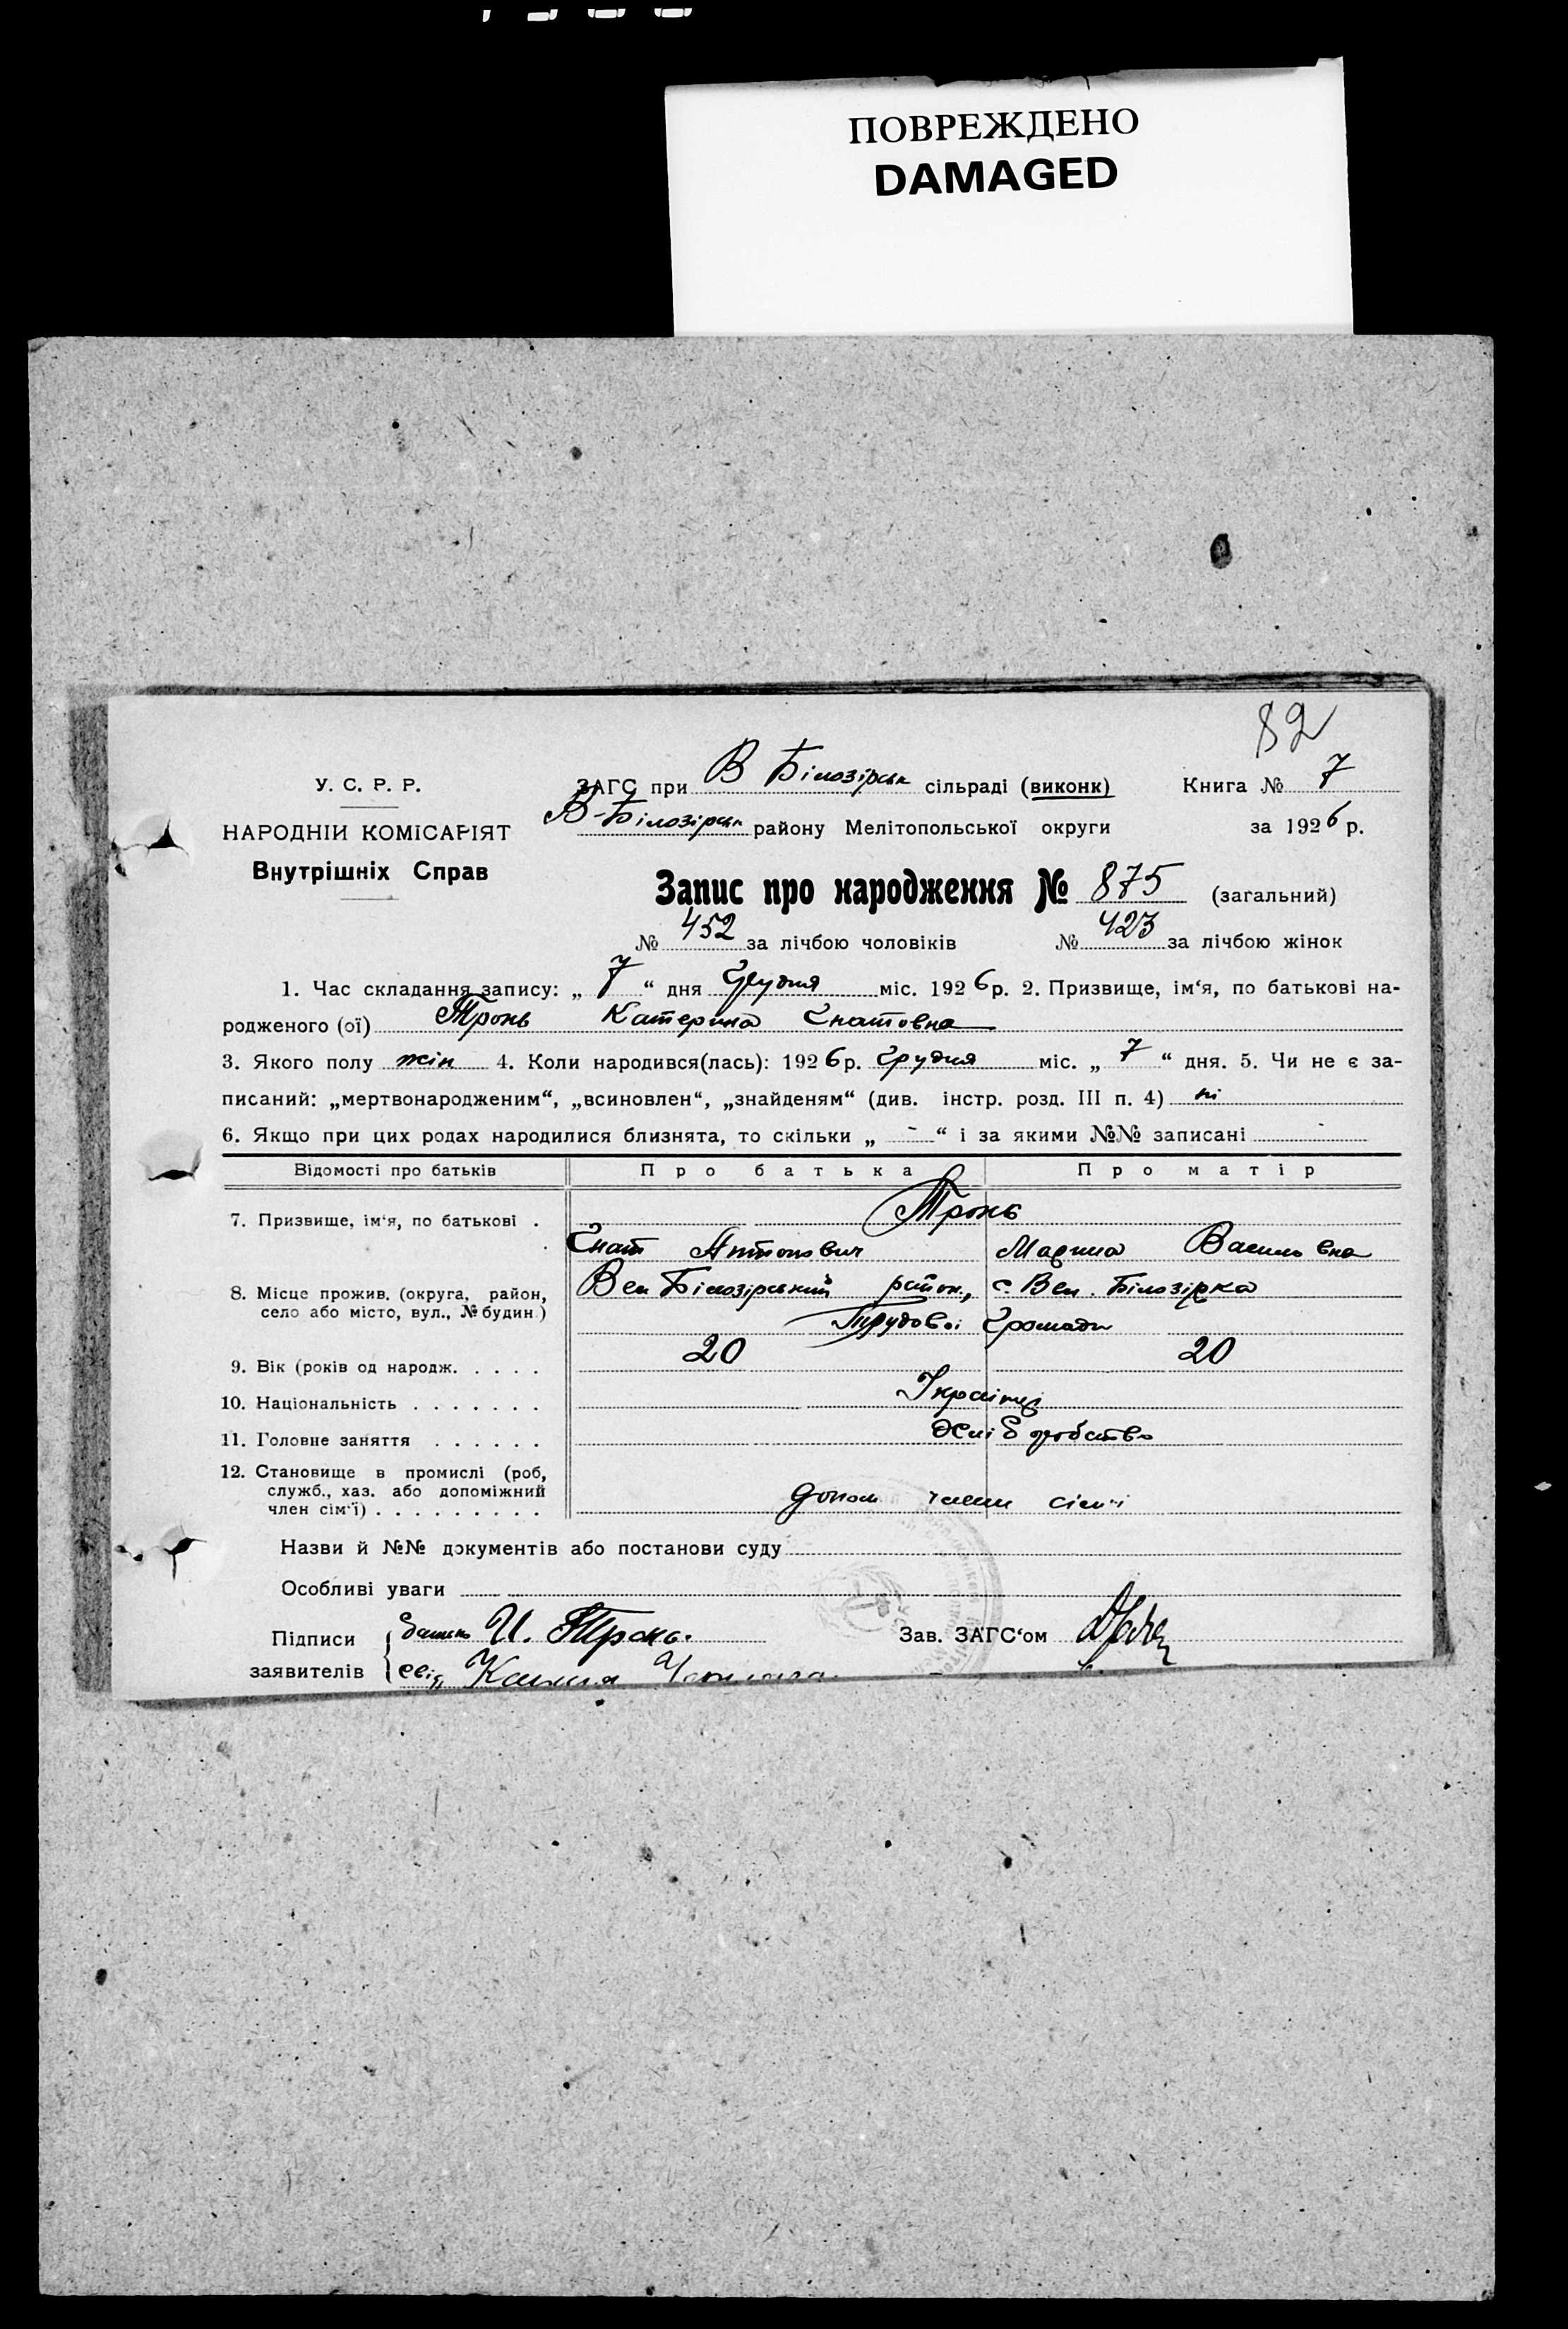 ПОВРЕЖДЕНО
DAMAGED
82
У. С. Р. Р.
НАРОДНІЙ КОМІСАРІЯТ
Внутрішніх Справ
ЗАГС при В Білозірськ сільраді (виконк) Книга № 7
В-Білозірськ району Мелітопольської округи за 1926 р.
Запис про народження № 875 (загальний)
№ 452 за лічбою чоловіків № 423 за лічбою жінок
1. Час складання запису: „ 7 “ дня Грудня міс. 1926 р. 2. Призвище, ім‘я, по батькові на-
родженого (ої) Тронь Катерина Гнатовна
3. Якого полу жін 4. Коли народився(лась): 1926 р. Грудня міс. „ 7 “ дня. 5. Чи не є за-
писаний: „мертвонародженим“, „всиновлен“, „знайденям“ (див. інстр. розд. III п. 4) ні
6. Якщо при цих родах народилися близнята, то скільки „ - “ і за якими №№ записані -
Відомості про батьків Про батька Про матір
7. Призвище, ім‘я, по батькові . Тронь
Гнат Антонович Марина Васильовна
8. Місце прожив. (округа, район, село або місто, вул., № будин.) Вел Білозірський район, с. Вел. Білозірка
Трудової Громади
9. Вік (років од народж. . . . . 20 20
10. Національність . . . . . . . Українці
11. Головне заняття . . . . . . Хліборобство
12. Становище в промислі (роб, служб., хаз. або допоміжний член сім‘ї) . . . . . . . . . допом члени сім'ї
Назви й №№ документів або постанови суду
Особливі уваги
Підписи заявителів батько И. Тронь. Зав. ЗАГС‘ом
свід